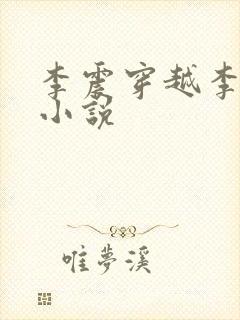 李震穿越李
小説
唯夢溪